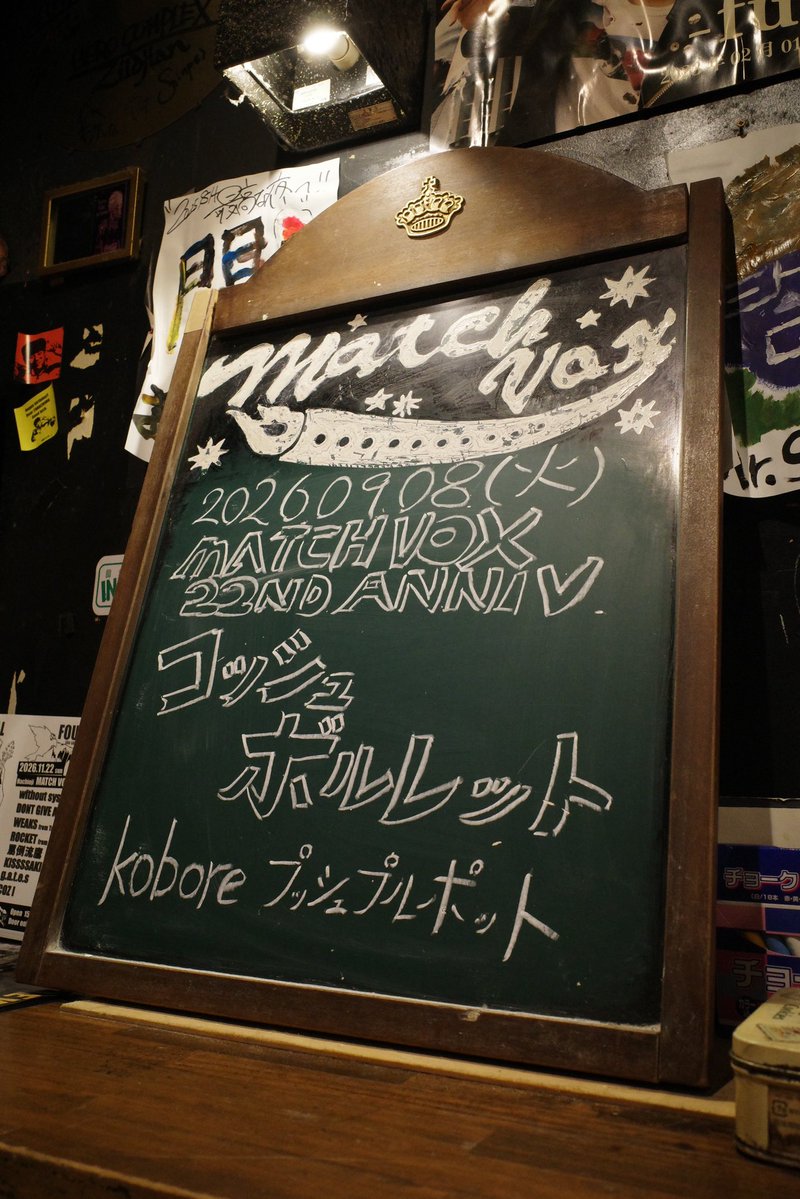 Match
vox
2026.09.08(火)
MATCH VOX
22ND ANNIV.
コッシュ
ボルレット
kobore プッシュプルポット
FOU
2026.11.22
MATCH VO
without sys
DONT GIVE A
WEAKS
ROCKET
罵倒流儀
KISSSSAKI
g.a.t.e.s
Open 15
チョーク
チョー
02月01
fu
IN
Mr.S